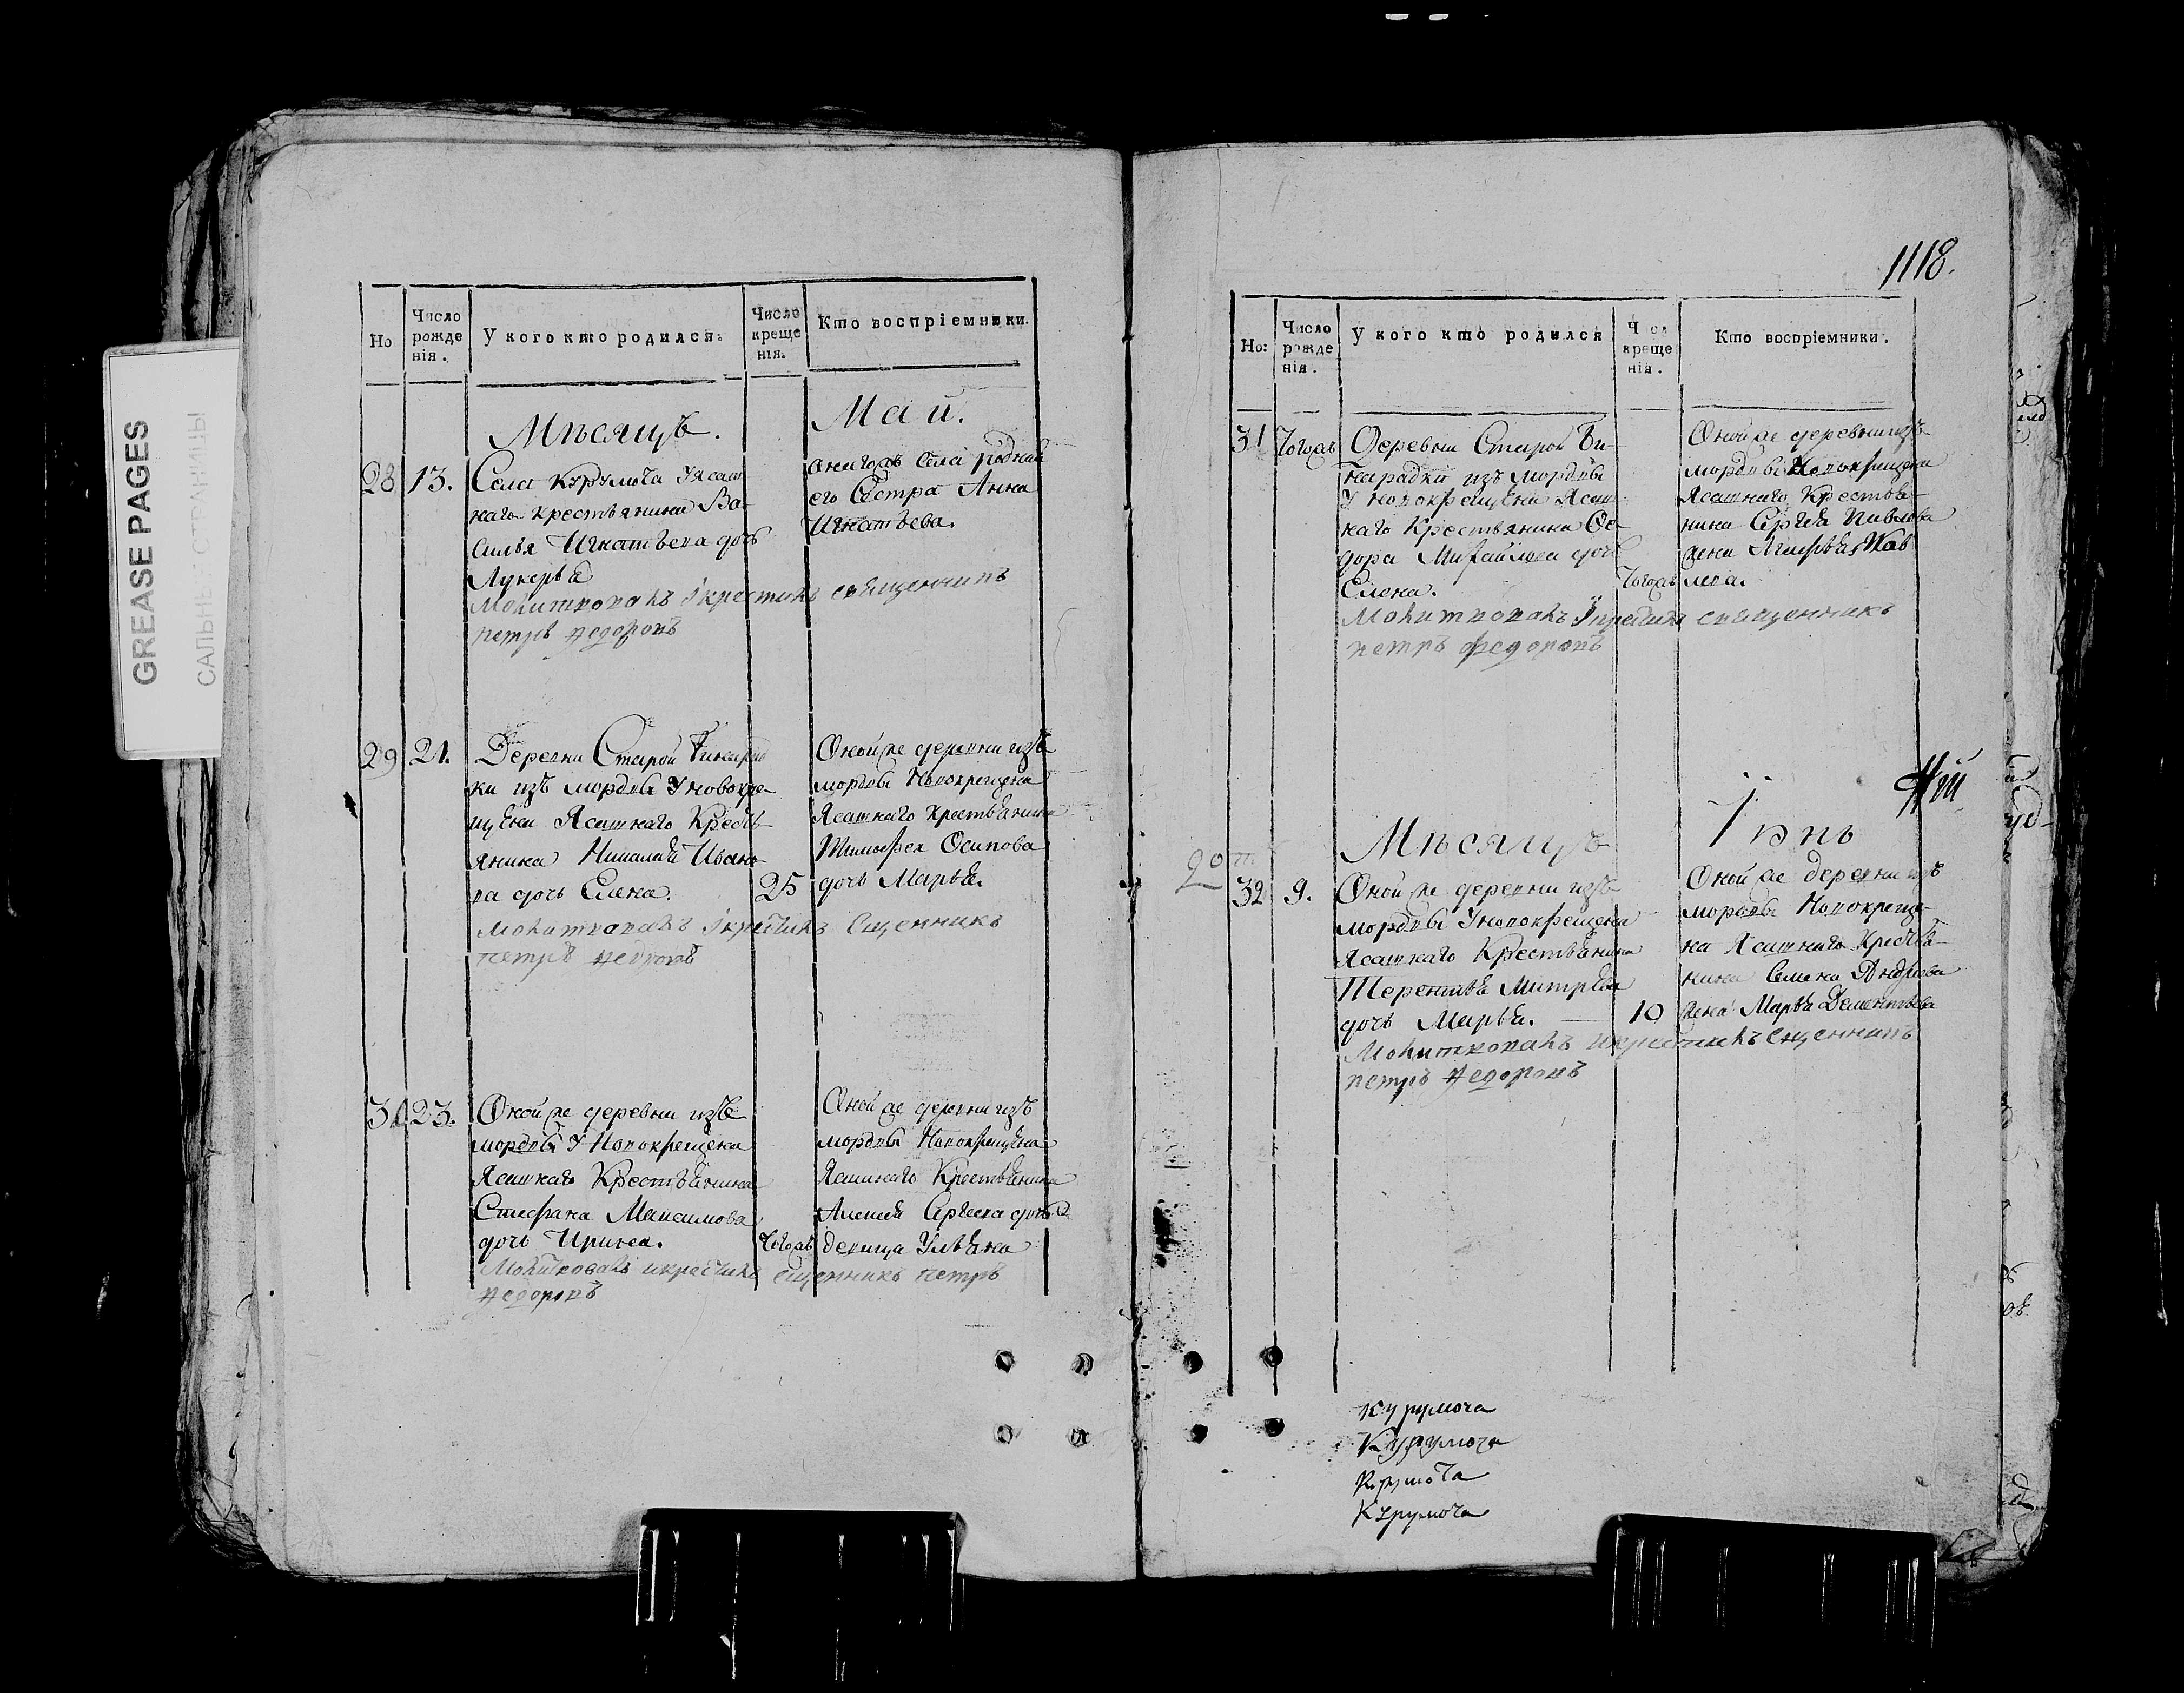 GREASE PAGES
САЛЬНЫЕ СТРАНИЦЫ
Но
Число рожде нія.
У кого кто родился.
Число креще нія.
Кто воспріемники.
Мѣсяцъ.
Май.
28 13.
Села Курумоча У ясаш
наго крестьянина Ва
силья Игнатьева дочь
Лукерья
Молитвовалъ і крестилъ священникъ
петръ Ѳедоровъ
села родная
его Сестра Анна
Игнатьева.
29 21.
Деревни Старой Бинарад
ки изъ мордвы У новокре-
щена Ясашнаго Кресть-
янина Николая Ивано
ва дочь Елена.
25
Молитвовалъ і крестилъ Сщенникъ
петръ Ѳедоровъ
Оной же деревни изъ
мордвы Новокрещена
Ясашнаго крестьянина
Тимофея Осипова
дочь Марья.
30 23.
Оной же деревни изъ
мордвы У Новокрещена
Ясашнаго Крестьянина
Стефана Максимова
дочь Ирина.
Тогожъ
Молитвовалъ и крестилъ сщенникъ петръ
Ѳедоровъ
Оной же деревни изъ
мордвы Новокрещена
Ясашнаго Крестьянина
Алексея Сргеева дочь
девица Ульяна
1118.
Но:
Число рожде нія.
У кого кто родился
Число креще нія.
Кто воспріемники.
31 Тогожъ
Деревни Старой Би-
нарадки изъ мордвы
У новокрещена Ясаш
наго Крестьянина Ѳе-
дора Михайлова дочь
Елена.
Тогожъ
Молитвовалъ і крестилъ священникъ
петръ федоровъ
Оной же деревни изъ
мордвы Новокрещена
Ясашнаго Крестья-
нина Сргея Павлова
жена
Мѣсяцъ
Іюнь
32 9.
Оной же деревни изъ
мордвы У новокрещена
Ясашнаго Крестьянина
Терентья Митрея
дочь Марья.
10
Молитвовалъ и крестилъ Сщенникъ
петръ Ѳедоровъ
Оной же деревни изъ
мордвы Новокреще-
на Ясашнаго Крестья-
нина Семена Андреева
жена Марья Дементьева
Курумоча
Курумоча
Курумоча
Курумоча